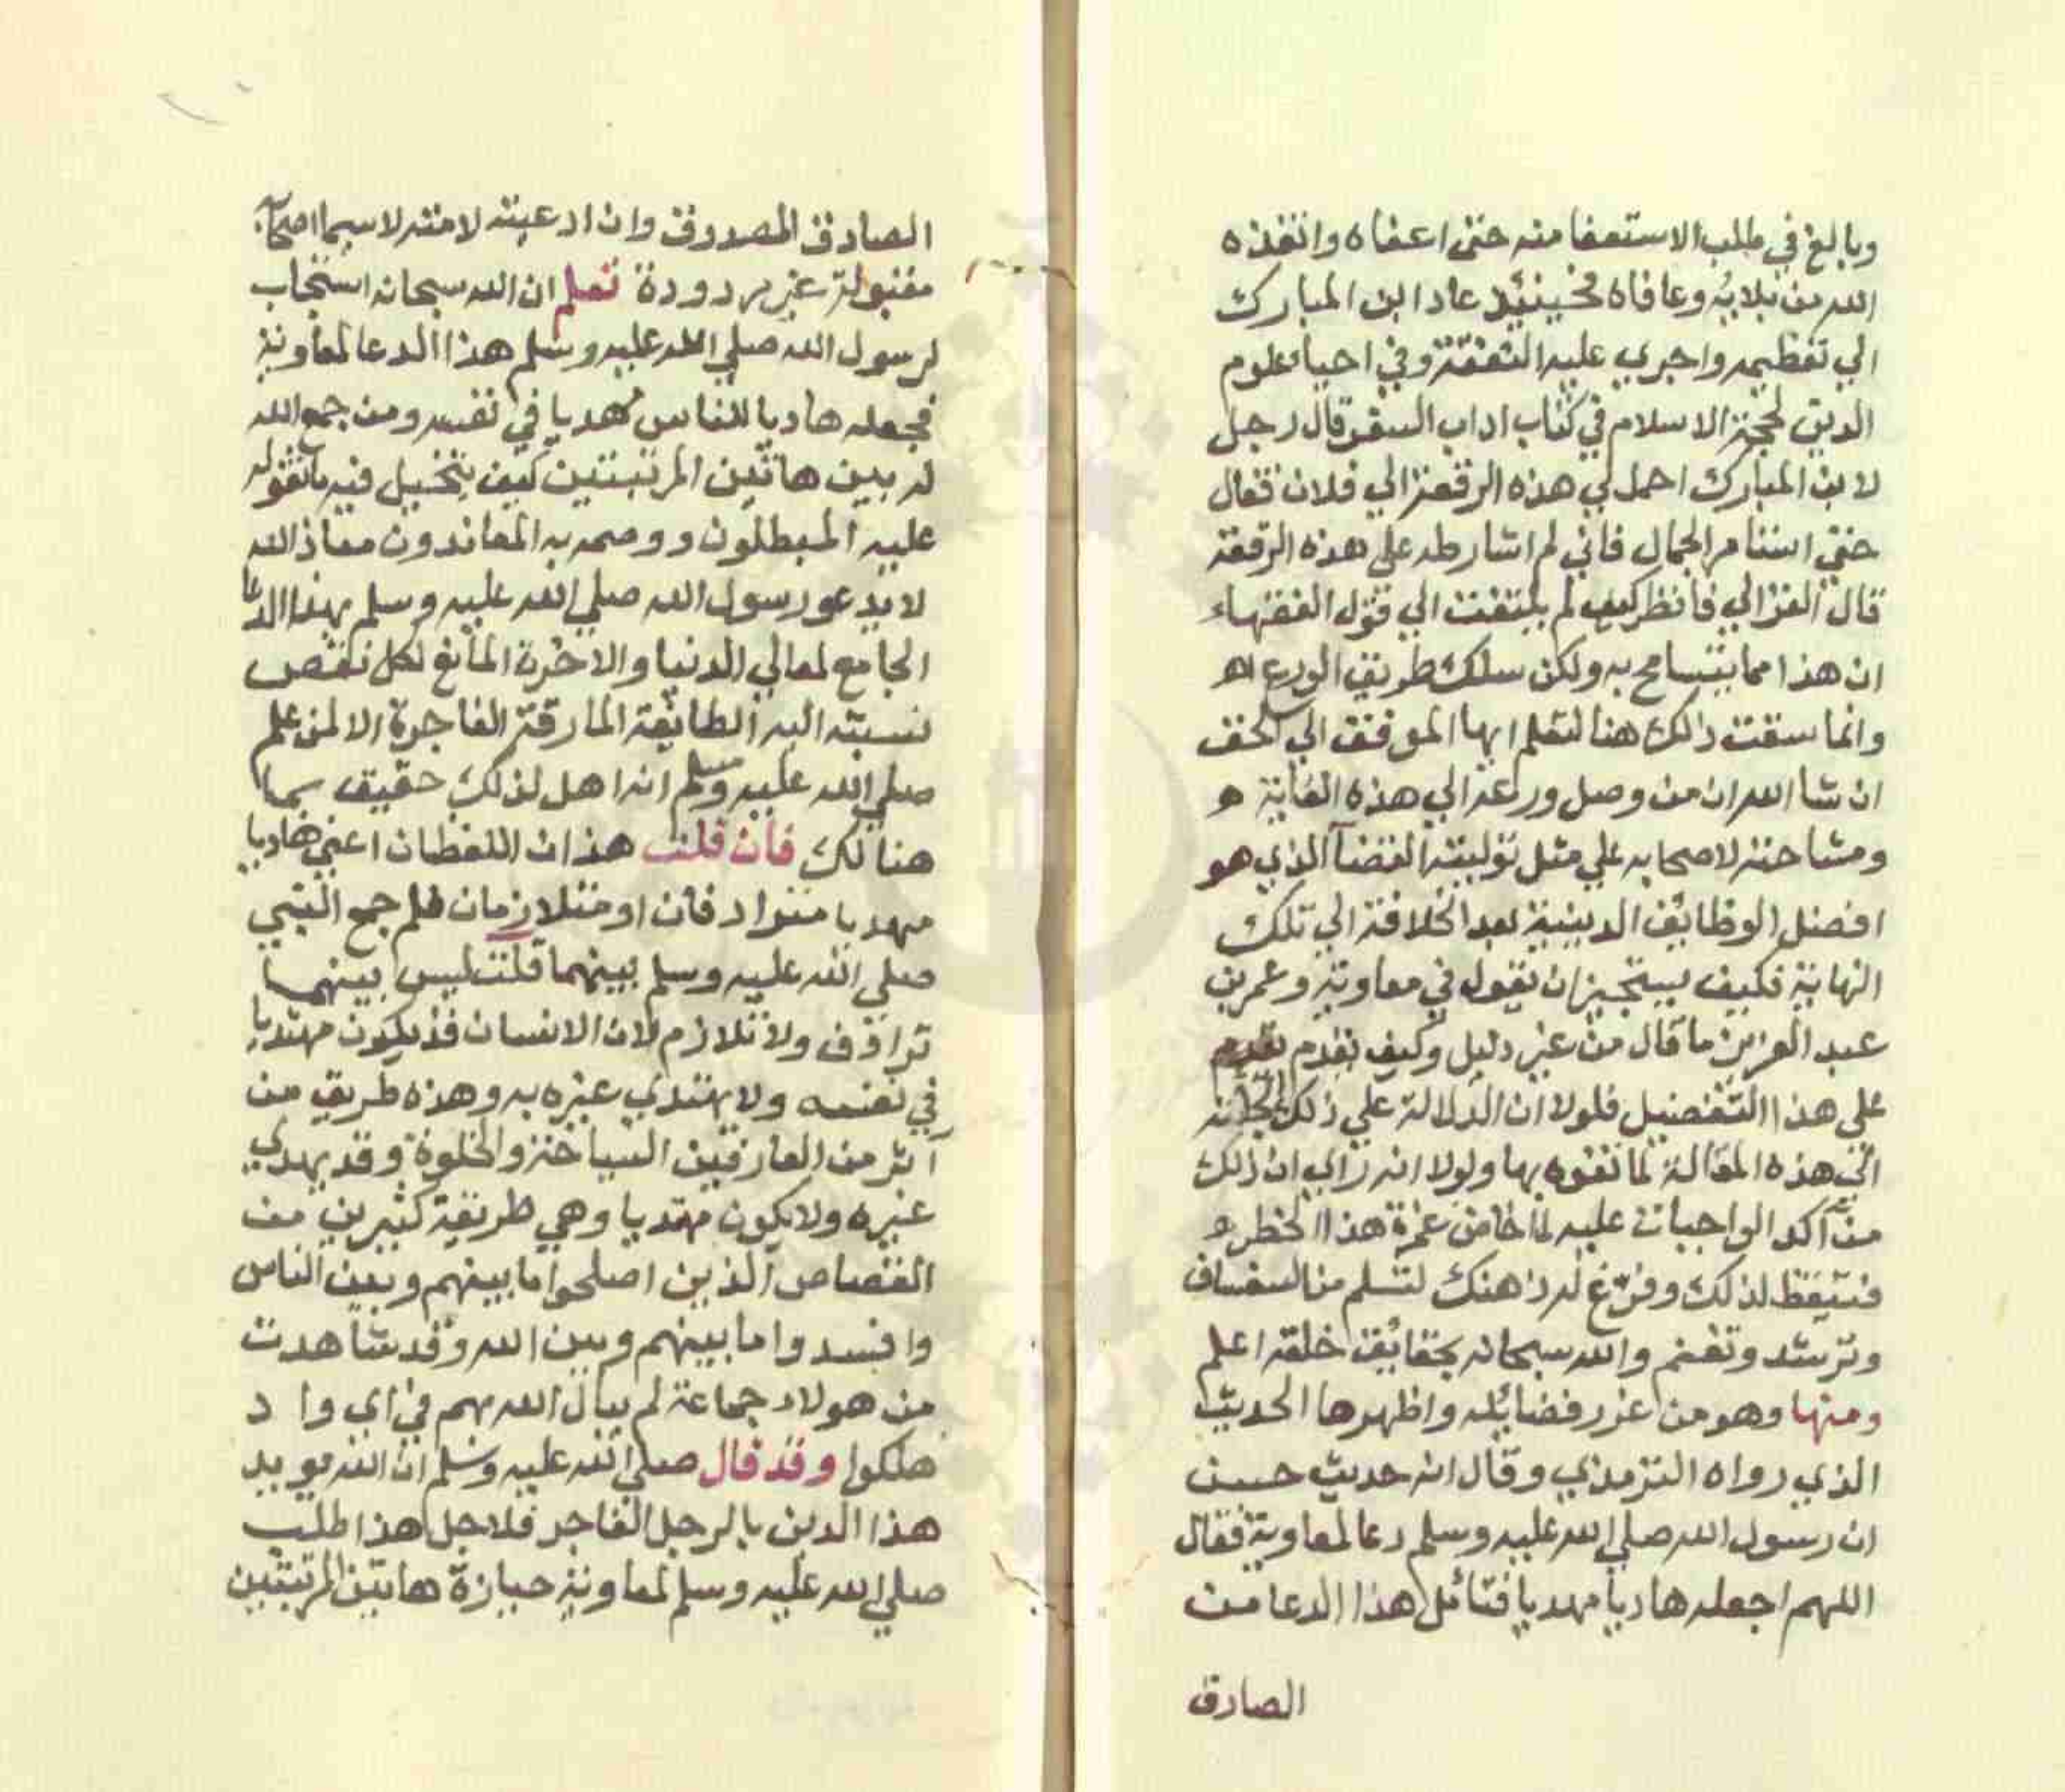 وبالغ في طلب الاستعفا منه حتى اعفاه وانقذه
الله من بلايه وعافاه فحينيذ عاد ابن المبارك
الي تعظيمه واجري عليه النفقة وفي احيا علوم
الدين لحجة الاسلام في كتاب اداب السفر قال رجل
لابن المبارك احمل لي هذه الرقعة الي فلان فقال
حتي استامر الجمال فاني لم اشارطه علي هذه الرقعة
قال الغزالي فانظر كيف لم يلتفت الي قول الفقهاء
ان هذا مما يتسامح به ولكن سلك طريق الورع اه
وانما سقت ذلك هنا لتعلم ايها الموفق الي الحق
ان شا الله ان من وصل ورعه الي هذه الغاية
ومشاحته لاصحابه علي مثل توليته القضآ الذي هو
افضل الوظايف الدينية بعد الخلافة الي تلك
النهاية فكيف يستجيز ان يقول في معاوية وعمر بن
عبد العزيز ما قال من غير دليل وكيف يقدم
علي هذا التفضيل فلولا ان الدلالة علي ذلك الجاته
الي هذه المقالة لما تفوه بها ولولا انه راي ان ذلك
من آكد الواجبات عليه لما خاض غمرة هذا الخطر
فتيقظ لذلك وفرّغ له ذهنك لتسلم من السفساف
وترشد وتغنم والله سبحانه بحقايق خلقه اعلم
ومنها وهو من غرر فضايله واظهرها الحديث
الذي رواه الترمذي وقال انه حديث حسن
ان رسول الله صلي الله عليه وسلم دعا لمعاوية فقال
اللهم اجعله هاديا مهديا فتامل هذا الدعا من
الصادق
الصادق المصدوق وان ادعيته لامته لاسيما اصحآبه
مقبولة غير مردودة تعلم ان الله سبحانه استجاب
لرسول الله صلي الله عليه وسلم هذا الدعا لمعاوية
فجعله هاديا للناس مهديا في نفسه ومن جمع الله
له بين هاتين المرتبتين كيف يتخيل فيه ما تقوله
عليه المبطلون ووصمه به المعاندون معاذ الله
لا يدعو رسول الله صلي الله عليه وسلم بهذا الدعا
الجامع لمعالي الدنيا والاخرة المانع لكل نقص
نسبته اليه الطايفة المارقة الفاجرة الا لمن علم
صلي الله عليه وسلم انه اهل لذلك حقيق بما
هنالك فان قلت هذان اللفظان اعني هاديا
مهديا مترادفان او متلازمان فلم جمع النبي
صلي الله عليه وسلم بينهما قلت ليس بينهما
ترادف ولا تلازم لان الانسان قد يكون مهتديا
في نفسه ولا يهتدي غيره به وهذه طريق من
آثر من العارفين السياحة والخلوة وقد يهدي
غيره ولا يكون مهتديا وهي طريقة كثيرين من
القصاص الذين اصلحوا ما بينهم وبين الناس
وافسدوا ما بينهم وبين الله وقد شاهدت
من هولاء جماعة لم يبال الله بهم في اي واد
هلكوا وقد قال صلي الله عليه وسلم ان الله يويد
هذا الدين بالرجل الفاجر فلاجل هذا طلب
صلي الله عليه وسلم لمعاوية حيازة هاتين المرتبتين